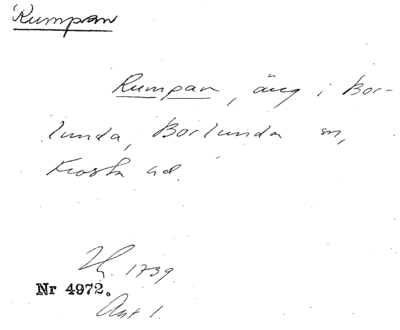 Rumpan
Rumpan, äng i Bor-
lunda, Borlunda sn,
Frosta hd.
1739.
Nr 4972.
Akt 1.